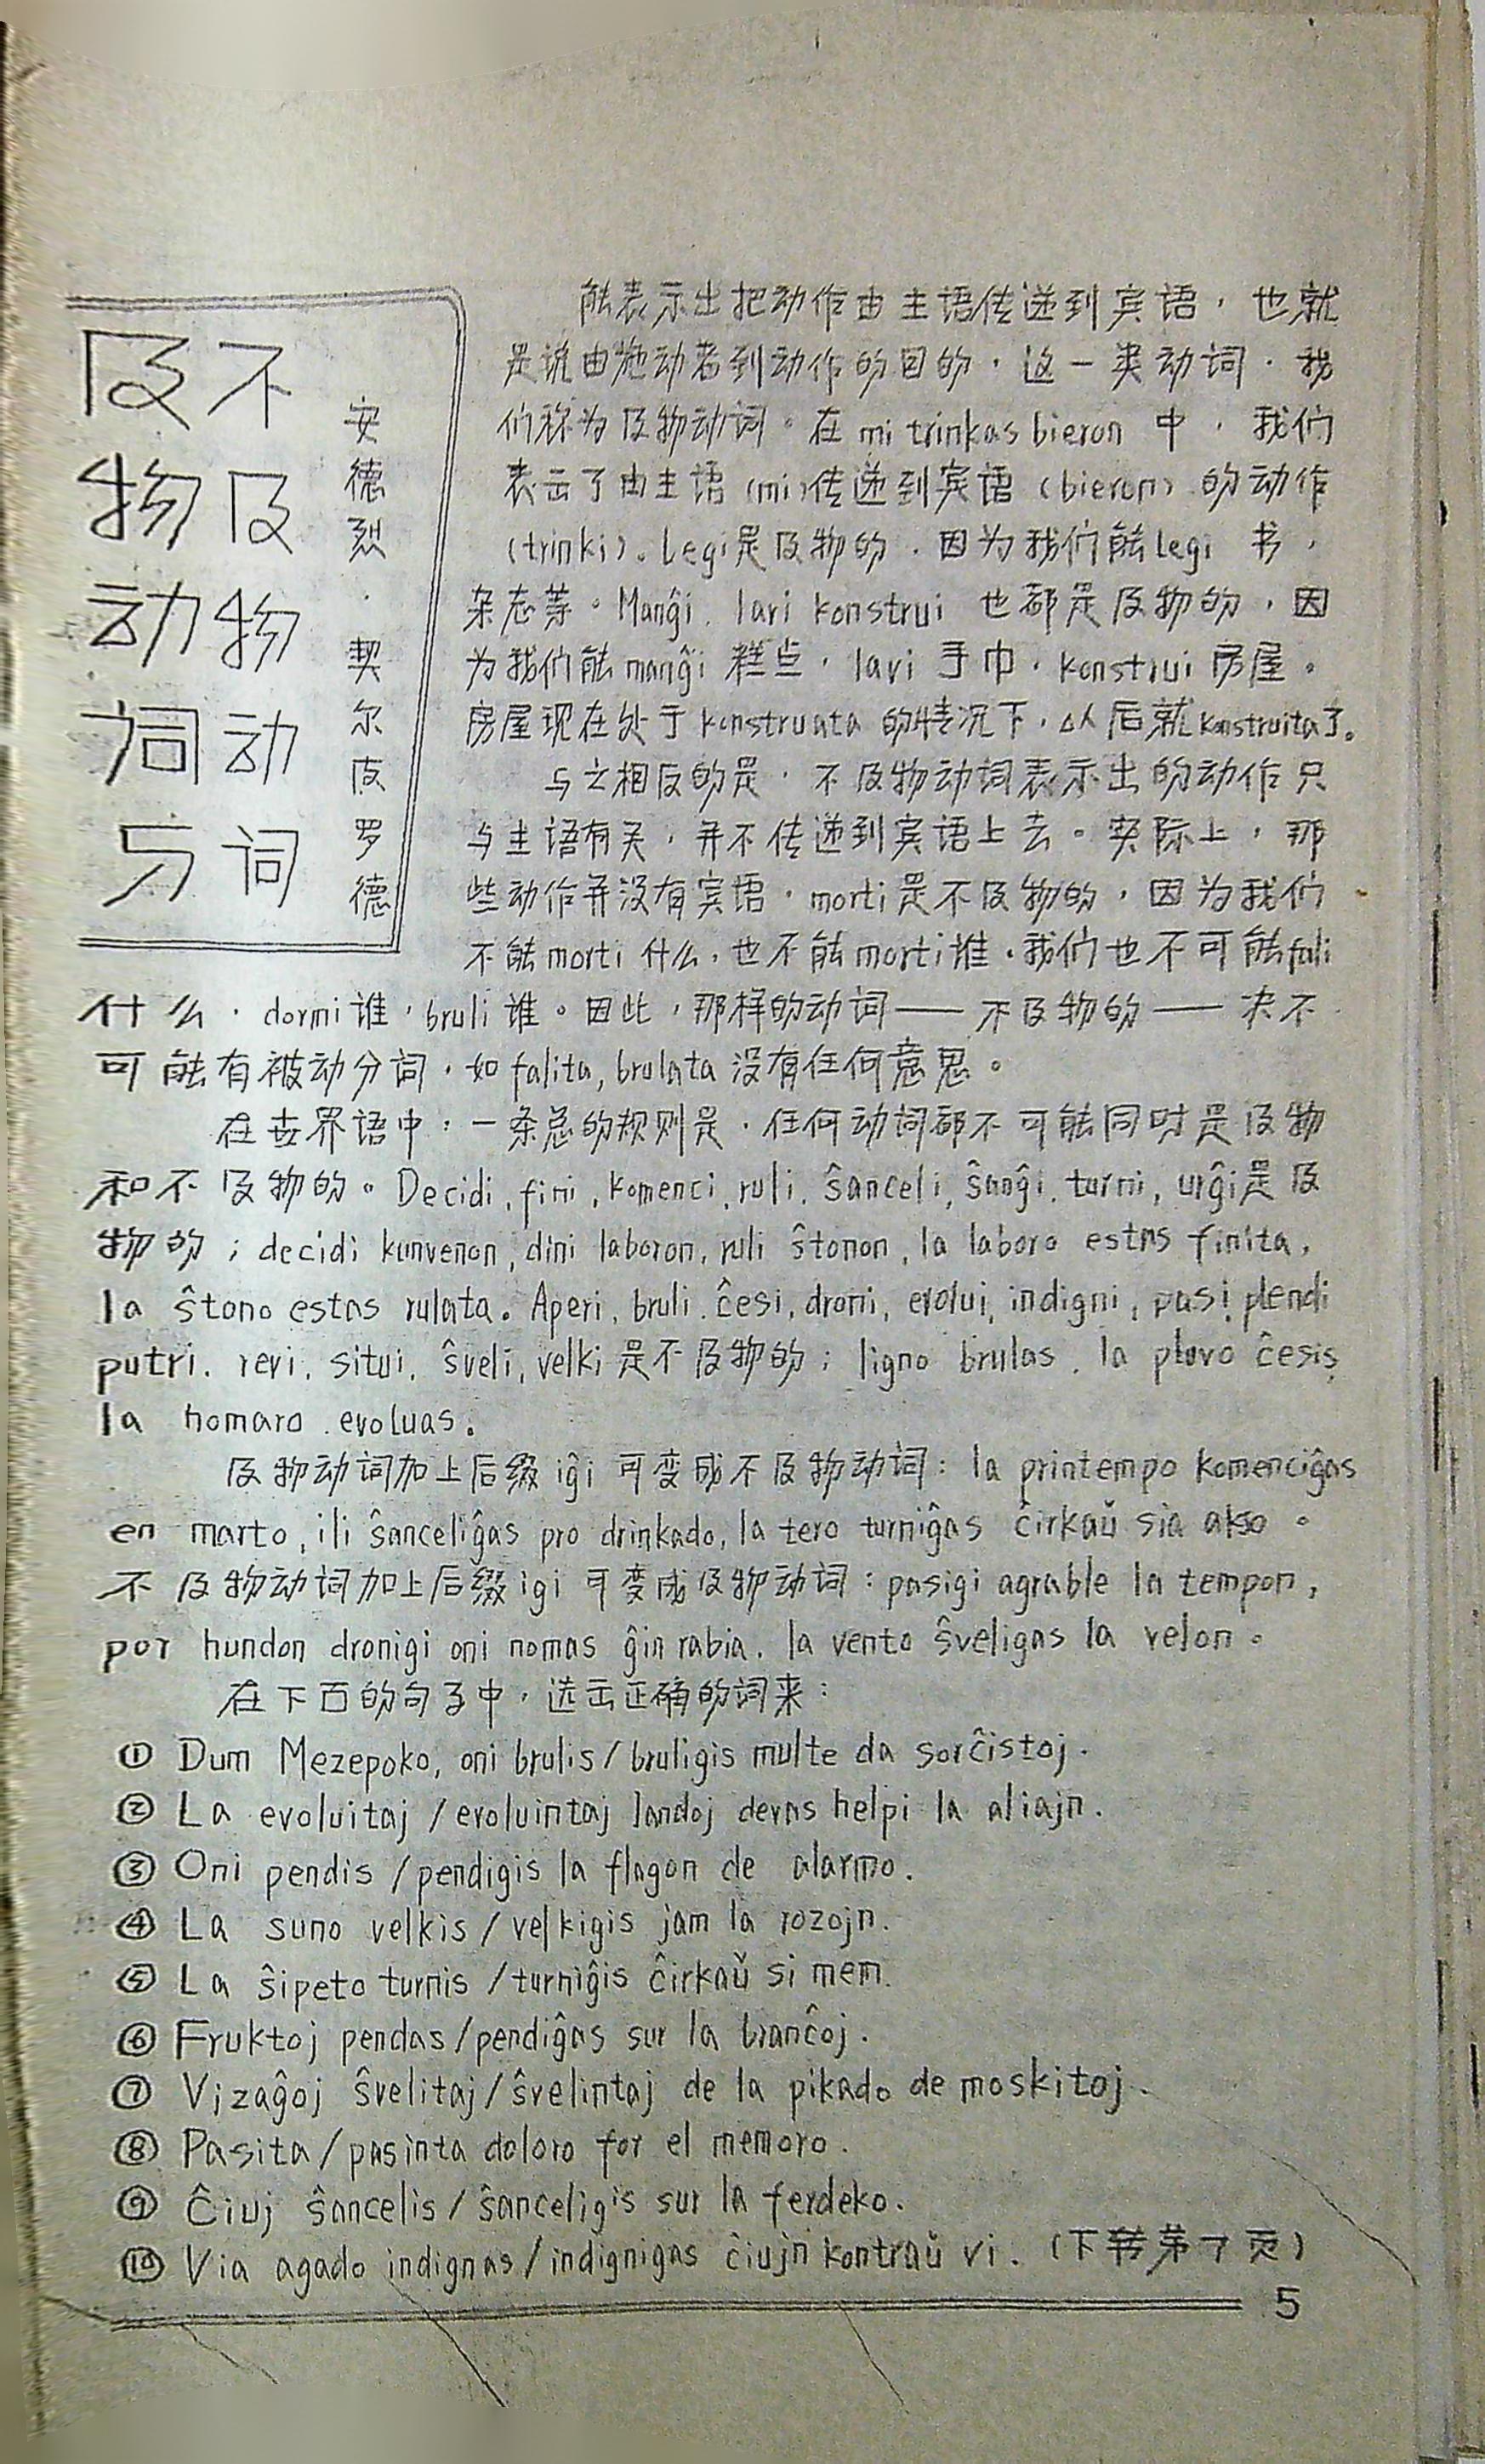 及物动词与
不及物动词
安德烈·契尔皮罗德
能表示出把动作由主语传递到宾语，也就
是说由施动者到动作的目的，这一类动词，我
们称为及物动词。在 mi trinkas bieron 中，我们
表示了由主语（mi）传递到宾语（bieron）的动作
（trinki）。Legi是及物的，因为我们能legi 书，
杂志等。Manĝi, lavi konstrui 也都是及物的，因
为我们能manĝi 糕点，lavi 手巾，konstrui 房屋。
房屋现在处于 konstruata 的情况下，以后就konstruita了。
与之相反的是，不及物动词表示出的动作只
与主语有关，并不传递到宾语上去。实际上，那
些动作并没有宾语，morti是不及物的，因为我们
不能morti 什么，也不能morti谁，我们也不可能fali
什么，dormi谁，bruli 谁。因此，那样的动词——不及物的——决不
可能有被动分词，如 falita, brulata 没有任何意思。
在世界语中，一条总的规则是，任何动词都不可能同时是及物
和不及物的。Decidi, fini, komenci, ruli, ŝanceli, ŝanĝi, turni, urĝi是及
物的；decidi kunvenon, dini laboron, ruli ŝtonon, la laboro estas finita,
la ŝtono estas rulata。Aperi, bruli, ĉesi, droni, evolui, indigni, pasi plendi
putri, revi, situi, ŝveli, velki 是不及物的；ligno brulas, la pluvo ĉesis,
la homaro evoluas。
及物动词加上后缀 iĝi 可变成不及物动词：la printempo komenciĝas
en marto, ili ŝanceliĝas pro drinkado, la tero turniĝas ĉirkaŭ sia akso。
不及物动词加上后缀 igi 可变成及物动词：pasigi agrable la tempon,
por hundon dronigi oni nomas ĝin rabia, la vento ŝveligas la velon。
在下面的句子中，选出正确的词来：
① Dum Mezepoko, oni brulis/bruligis multe da sorĉistoj.
② La evoluitaj/evoluintaj landoj devas helpi la aliajn.
③ Oni pendis/pendigis la flagon de alarmo.
④ La suno velkis/velkigis jam la rozojn.
⑤ La ŝipeto turnis/turniĝis ĉirkaŭ si mem.
⑥ Fruktoj pendas/pendiĝas sur la branĉoj.
⑦ Vizaĝoj ŝvelitaj/ŝvelintaj de la pikado de moskitoj.
⑧ Pasita/pasinta doloro for el memoro.
⑨ Ĉiuj ŝancelis/ŝanceligis sur la ferdeko.
⑩ Via agado indignas/indignigas ĉiujn kontraŭ vi.（下转第7页）
5